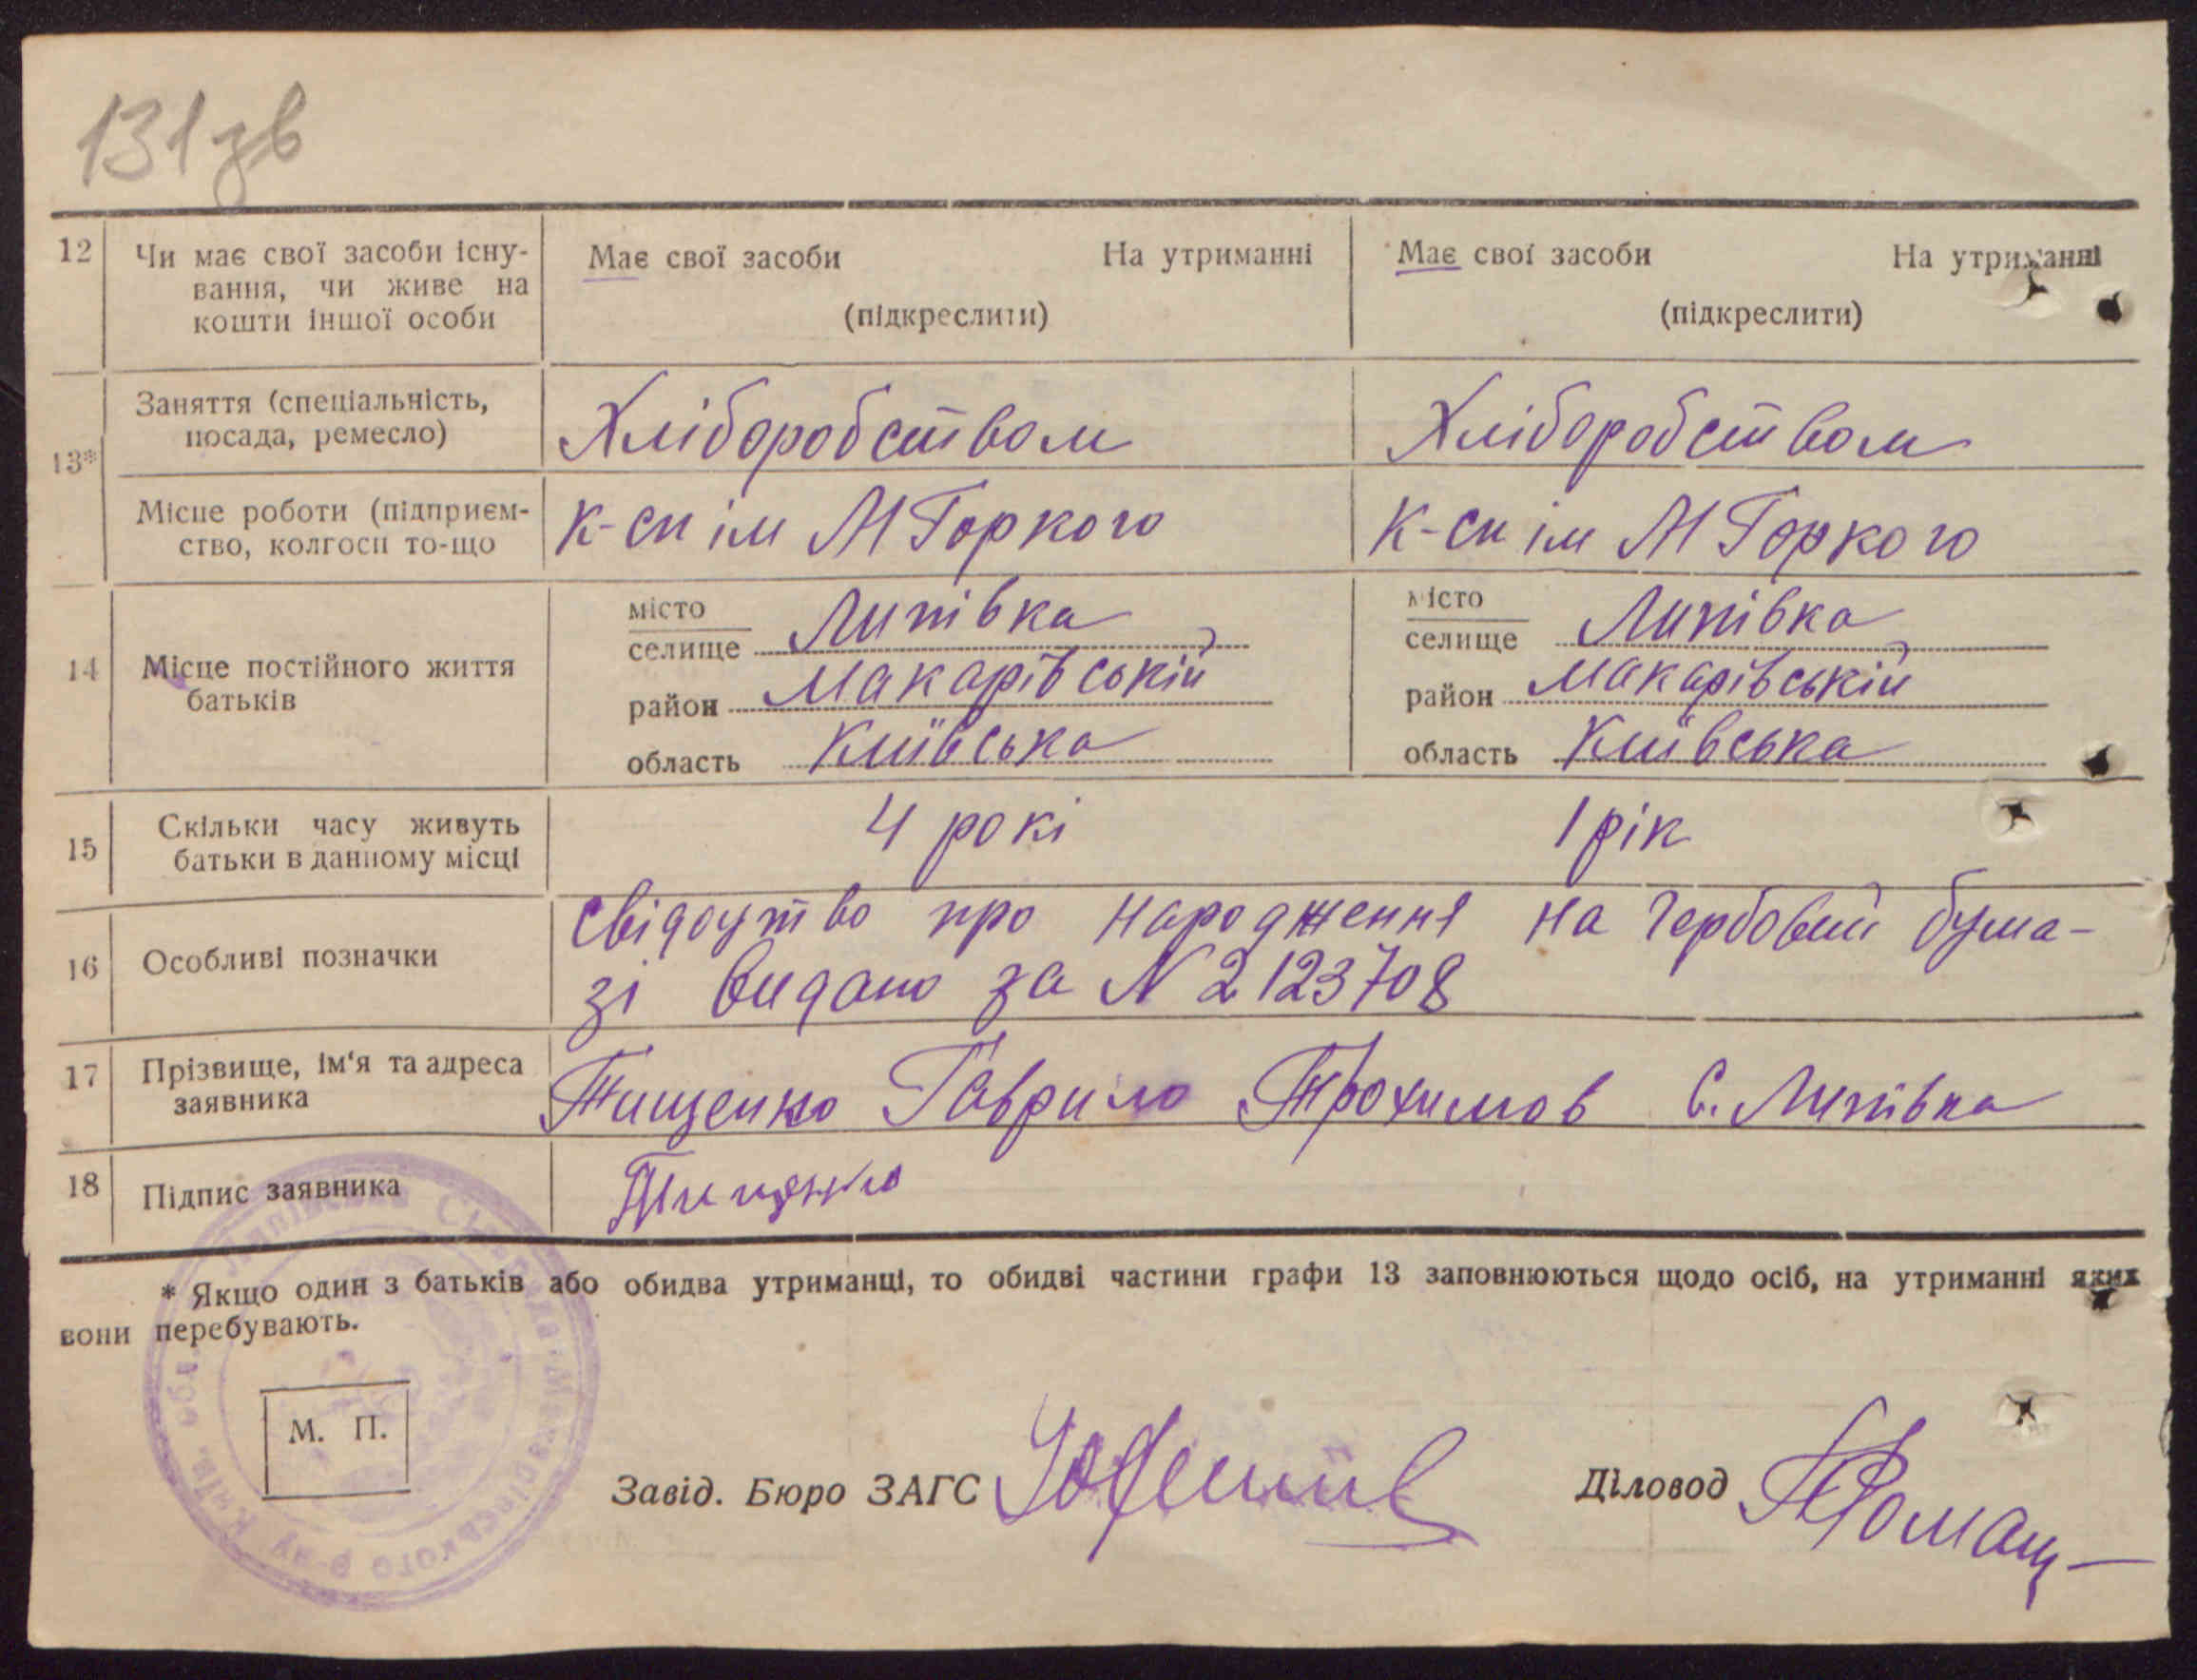 131зв
12 Чи має свої засоби існу- Має свої засоби На утриманні Має свої засоби На утриманні
вання, чи живе на
кошти іншої особи (підкреслити) (підкреслити)
Заняття (спеціальність,
посада, ремесло) Хліборобством Хліборобством
13*
Місце роботи (підприєм- к-сп ім М Горкого к-сп ім М Горкого
ство, колгосп то-що
місто Липівка місто Липівка
селище селище
14 Місце постійного життя район Макарівській район Макарівській
батьків
область Київська область Київська
15 Скільки часу живуть 4 рокі 1 рік
батьки в данному місці
свідоцтво про народження на гербовий бума-
16 Особливі позначки
зі видано за N 2123708
17 Прізвище, ім'я та адреса Тищенко Гаврило Трохимов С. Липівка
заявника
18 Підпис заявника Тищенко
* Якщо один з батьків або обидва утриманці, то обидві частини графи 13 заповнюються щодо осіб, на утриманні яких
вони перебувають.
М. П.
Завід. Бюро ЗАГС Діловод
Макарівського р-ну Київ. обл.